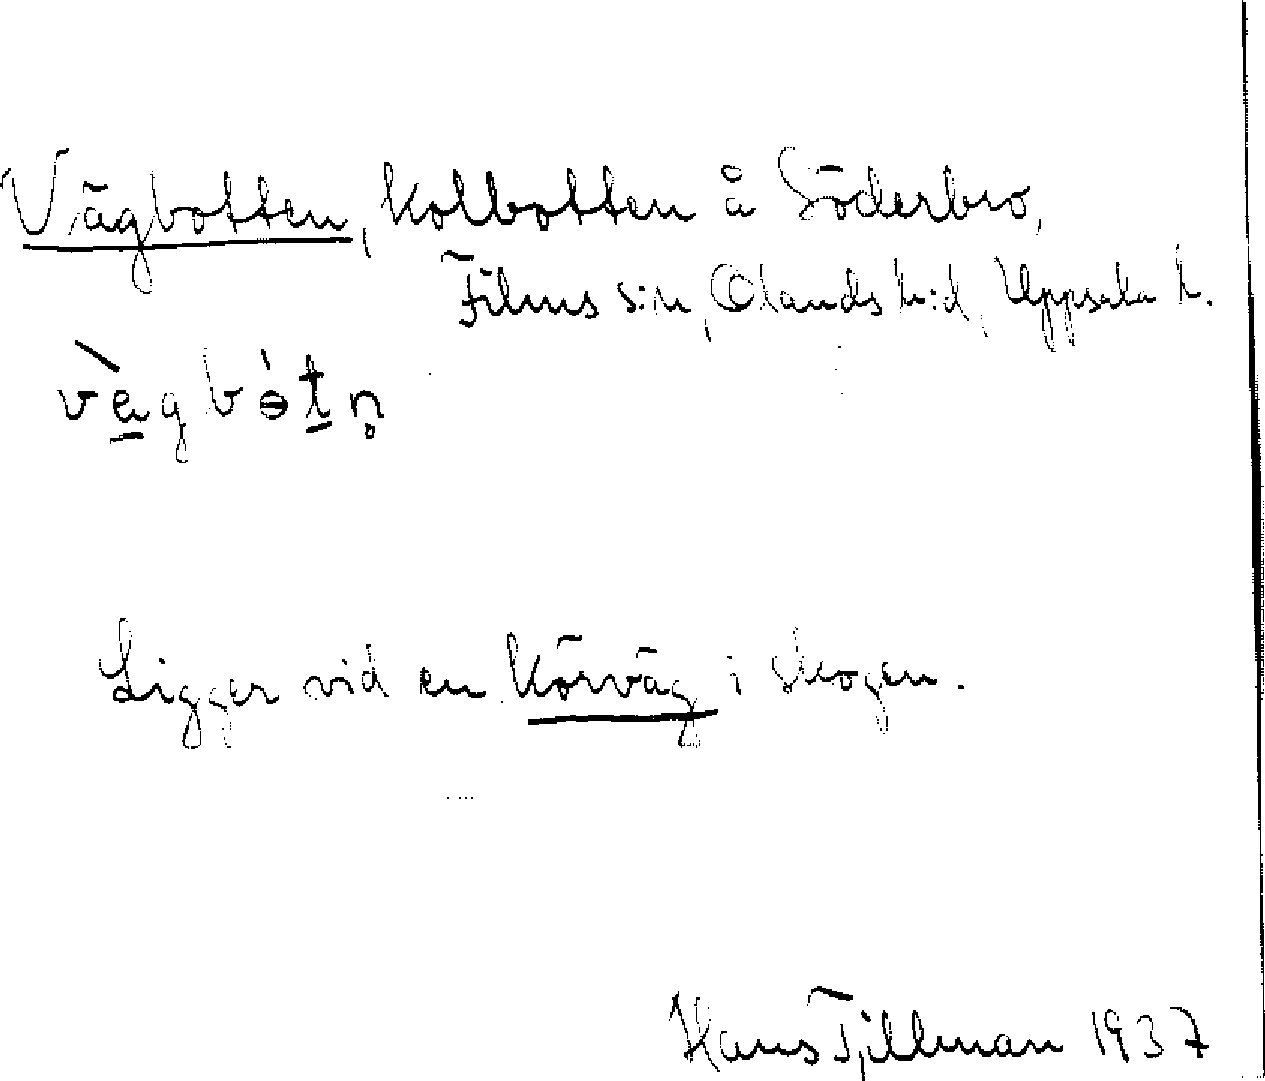 Vägbotten, kolbotten å Söderbro,
Films s:n, Olands h:d, Uppsala l.
vègbótn̥
Ligger vid en körväg i skogen.
Hans Tjillman 1937